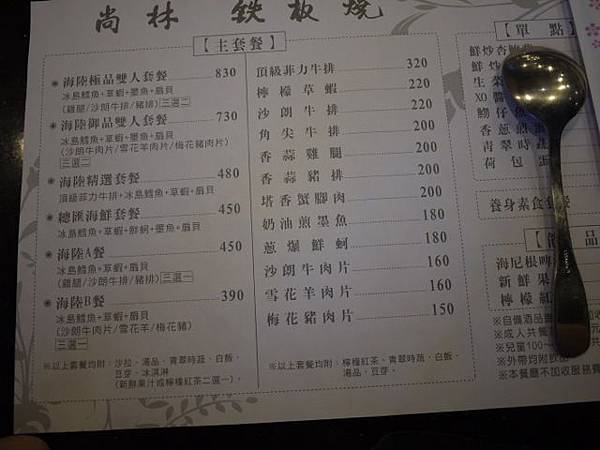 尚林 鉄板燒
【主套餐】
海陸極品雙人套餐 830
冰島鱈魚+草蝦+墨魚+扇貝
(雞腿/沙朗牛排/豬排)三選二
海陸御品雙人套餐 730
冰島鱈魚+草蝦+墨魚+扇貝
(沙朗牛肉片/雪花羊肉片/梅花豬肉片)
三選二
海陸精選套餐 480
頂級菲力牛排+冰島鱈魚+草蝦+扇貝
總匯海鮮套餐 450
冰島鱈魚+草蝦+鮮蚵+墨魚+扇貝
海陸A餐 450
冰島鱈魚+草蝦+扇貝
(雞腿/沙朗牛排/豬排)三選一
海陸B餐 390
冰島鱈魚+草蝦+扇貝
(沙朗牛肉片/雪花羊/梅花豬)
三選一
※以上套餐均附:沙拉、湯品、青翠時蔬、白飯、
豆芽、冰淇淋
(新鮮果汁或檸檬紅茶二選一)。
頂級菲力牛排 320
檸檬草蝦 220
沙朗牛排 220
角尖牛排 200
香蒜雞腿 200
香蒜豬排 200
塔香蟹腳肉 200
奶油煎墨魚 180
蔥爆鮮蚵 180
沙朗牛肉片 160
雪花羊肉片 160
梅花豬肉片 150
※以上套餐均附:檸檬紅茶、青翠時蔬、白飯、
湯品、豆芽。
【單點】
鮮炒
鮮炒
生菜
XO醬
魩仔魚
香蔥煎
青翠時
荷包蛋
養身素食套餐
品
海尼根啤
新鮮果
檸檬紅
※自備酒品
※成人共餐
※兒童100~
※外帶均附
※本餐廳不加收服務費